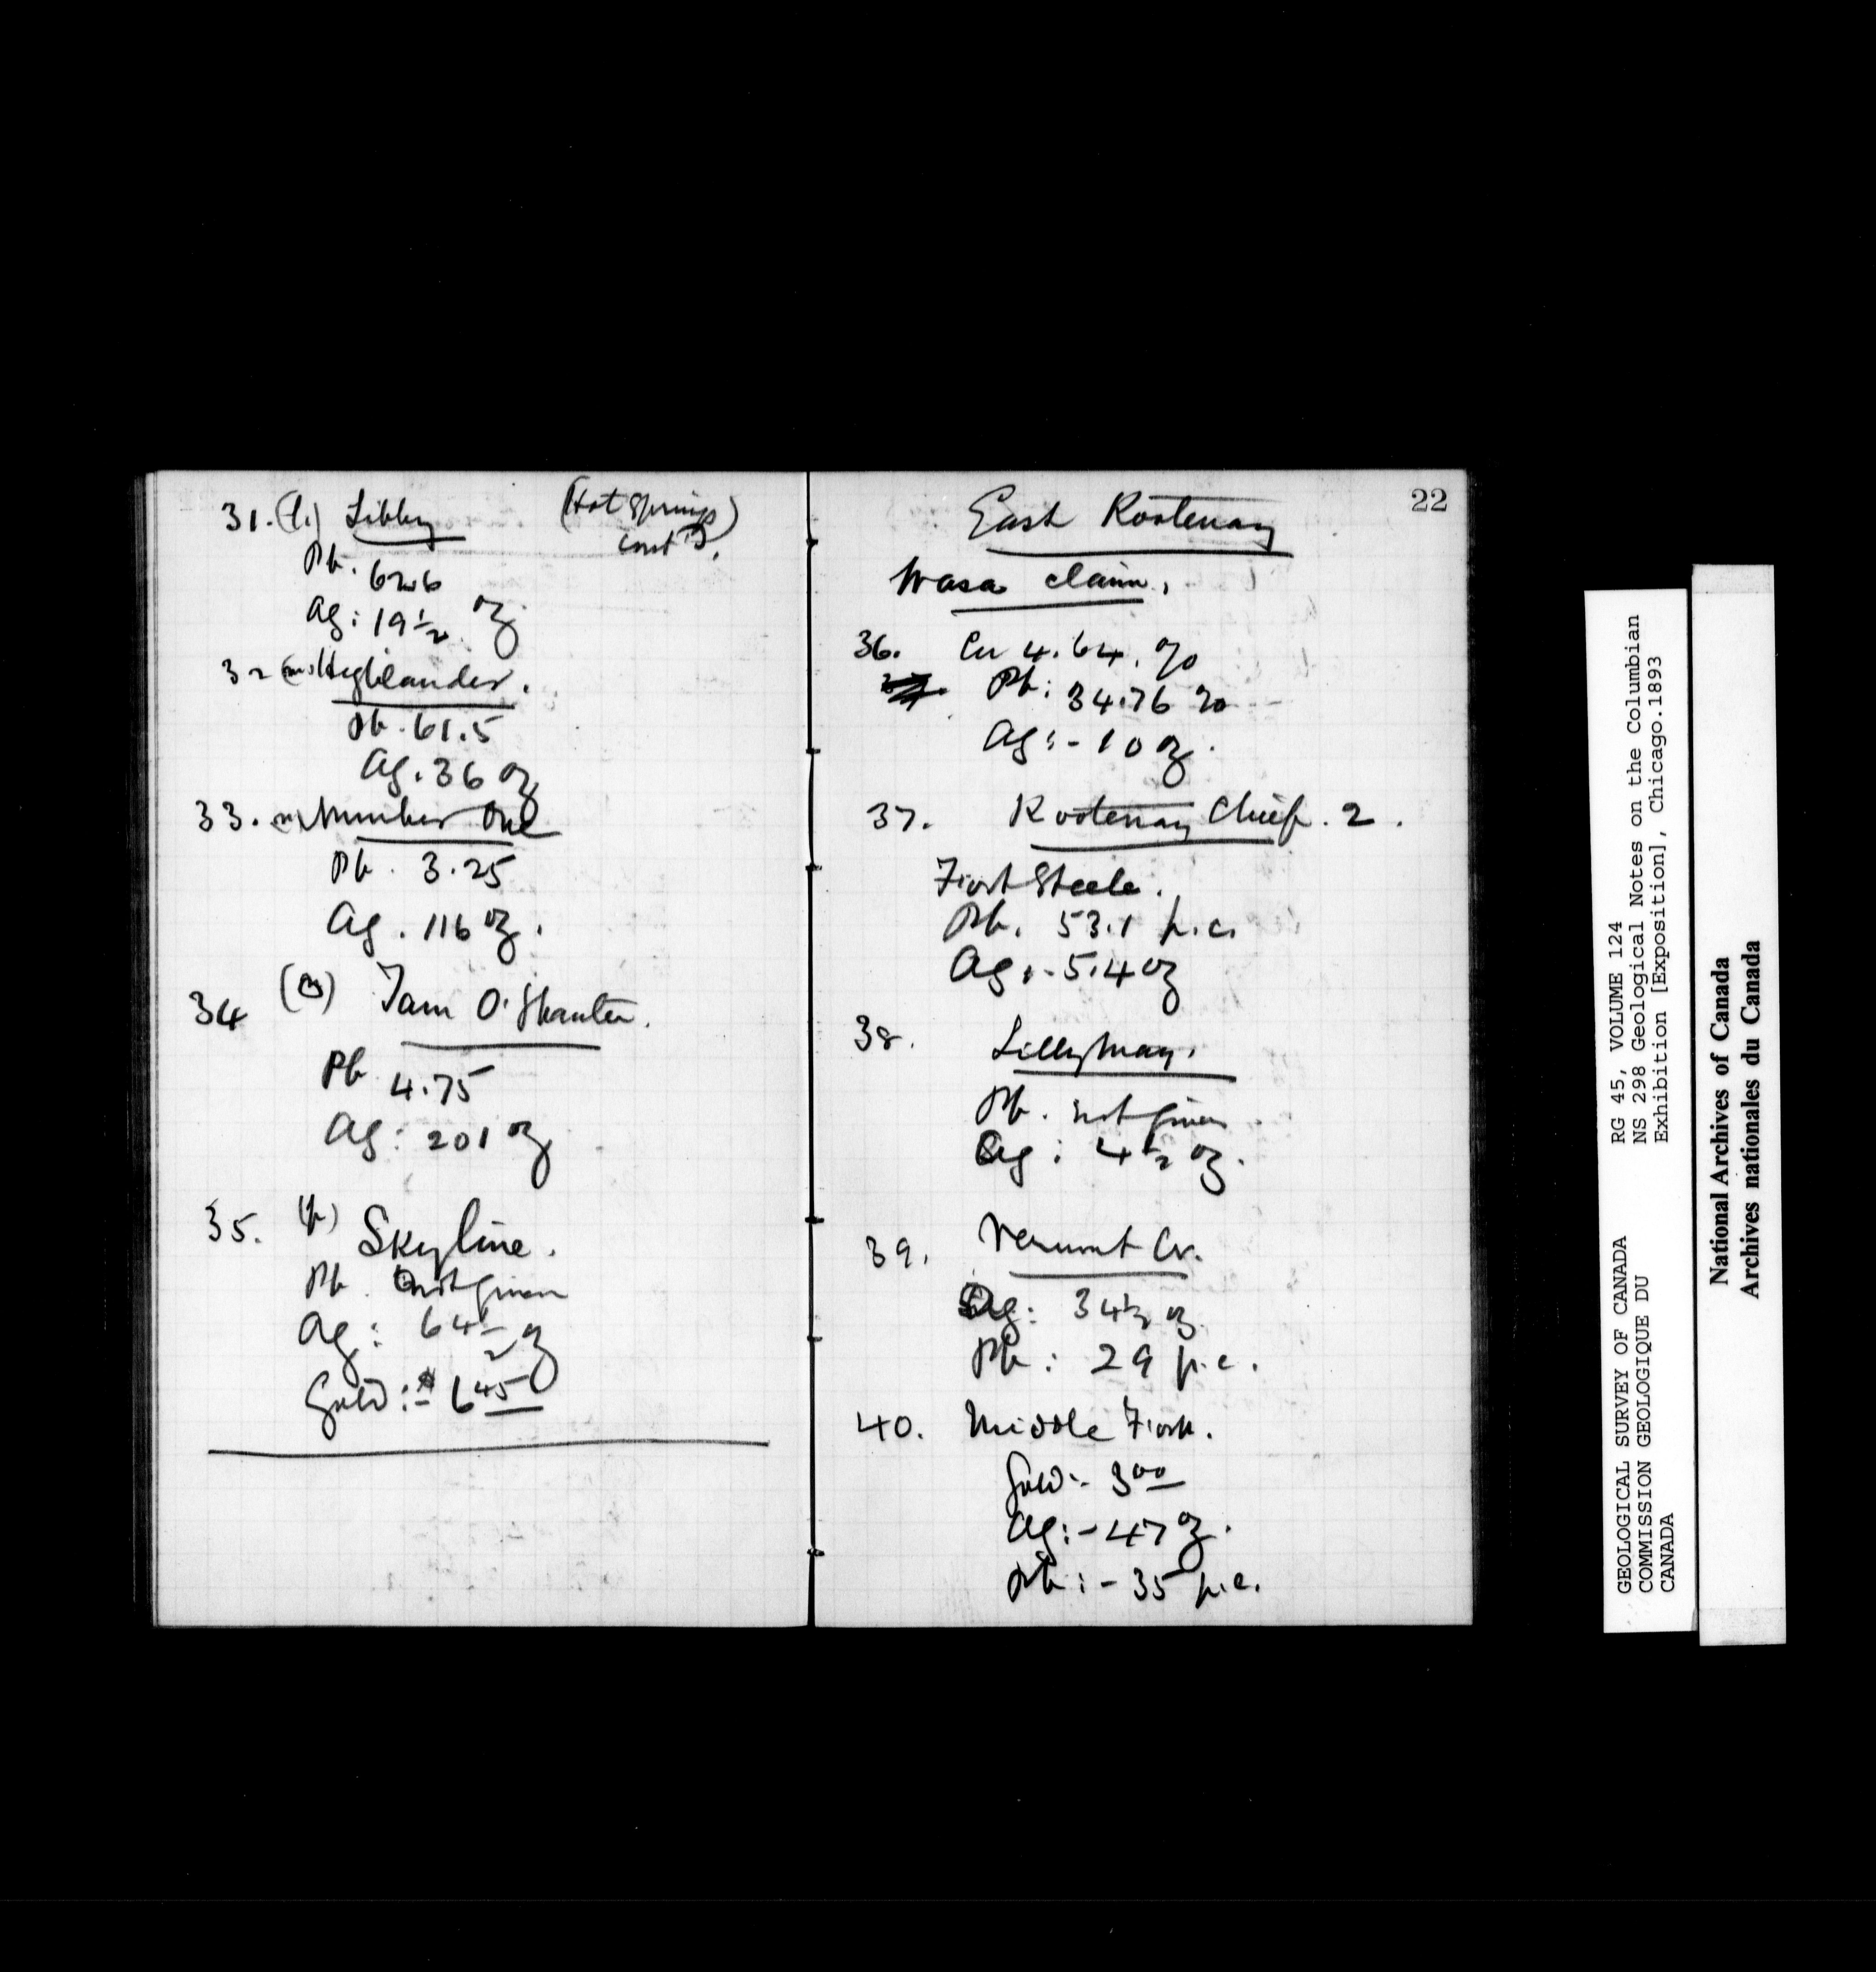 31. (l.) Libby (Hot Springs
cont'd.)
Pb. 62.6
Ag: 19 1/2 oz
32 (m) Highlander.
Pb. 61.5
Ag. 36 oz
33. (n) Number One
Pb. 3.25
Ag. 116 oz.
34 (o) Tam O'Shanter.
Pb 4.75
Ag: 201 oz
35. (p) Skyline.
Pb. not given
Ag: 64 1/2 oz
Gold:- $6 45
22
East Kootenay
Wasa claim.
36. Cu 4.64. %
Pb: 34.76 %
Ag:- 10 oz.
37. Kootenay Chief. 2.
Fort Steele.
Pb. 53.1 p.c.
Ag.- 5.4 oz
38. Lilly May.
Pb. not given
Ag: 4 1/2 oz.
39. Vermont Cr.
Ag: 34 1/2 oz.
Pb: 29 p.c.
40. Middle Fork.
Gold:- 3 00
Ag:- 47 oz.
Pb:- 35 p.c.
GEOLOGICAL SURVEY OF CANADA
COMMISSION GEOLOGIQUE DU
CANADA
RG 45, VOLUME 124
NS 298 Geological Notes on the Columbian
Exhibition [Exposition], Chicago.1893
National Archives of Canada
Archives nationales du Canada